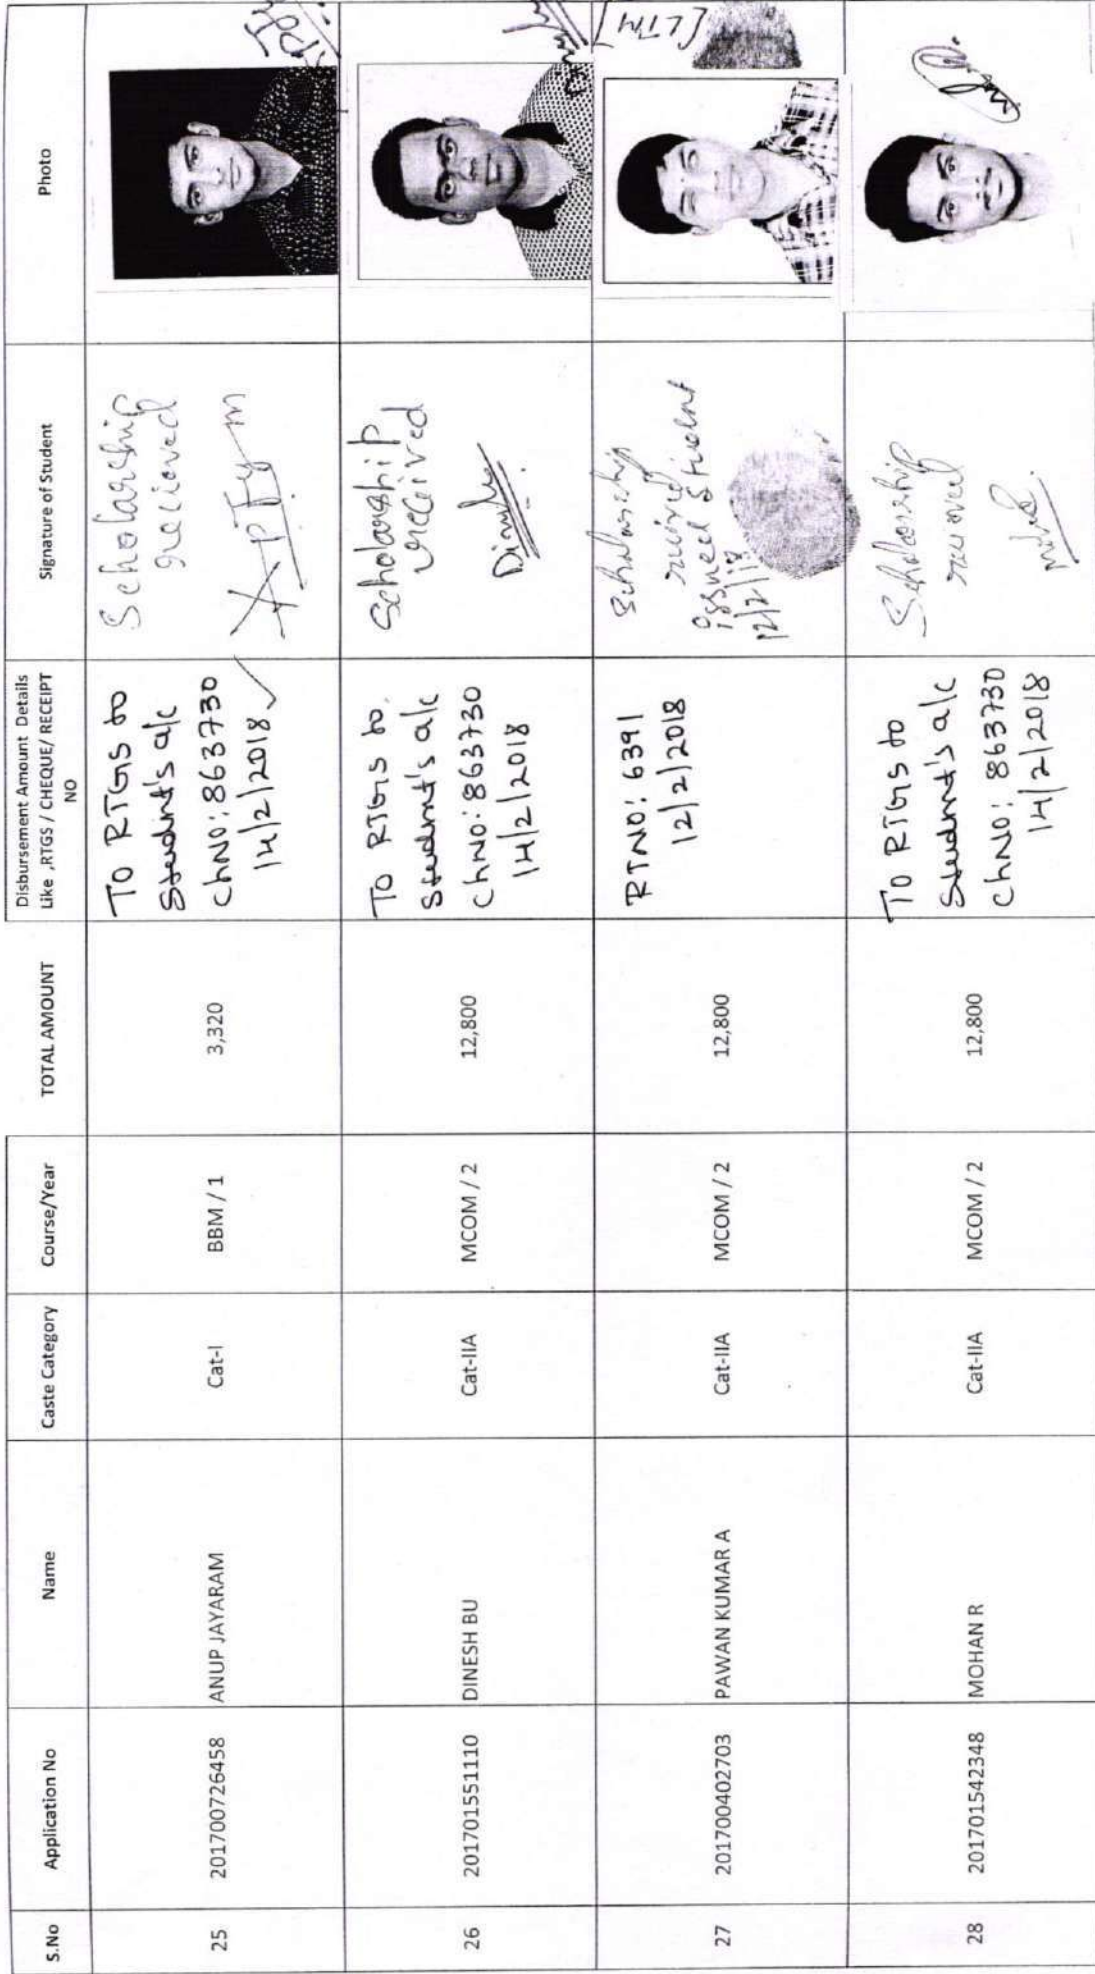 S.No Application No Name Caste Category Course/Year TOTAL AMOUNT Disbursement Amount Details Like ,RTGS / CHEQUE/ RECEIPT NO Signature of Student Photo
25 201700726458 ANUP JAYARAM Cat-I BBM / 1 3,320
To RTGS to
Student's a/c
ChNO: 863730
14/2/2018
Scholarship
26 201701551110 DINESH BU Cat-IIA MCOM / 2 12,800
To RTGS to
Student's a/c
ChNO: 863730
14/2/2018
Scholarship
received
27 201700402703 PAWAN KUMAR A Cat-IIA MCOM / 2 12,800
RTNO: 6391
12/2/2018
Scholarship
12/2/18
[LTM]
28 201701542348 MOHAN R Cat-IIA MCOM / 2 12,800
To RTGS to
Student's a/c
ChNO: 863730
14/2/2018
Scholarship